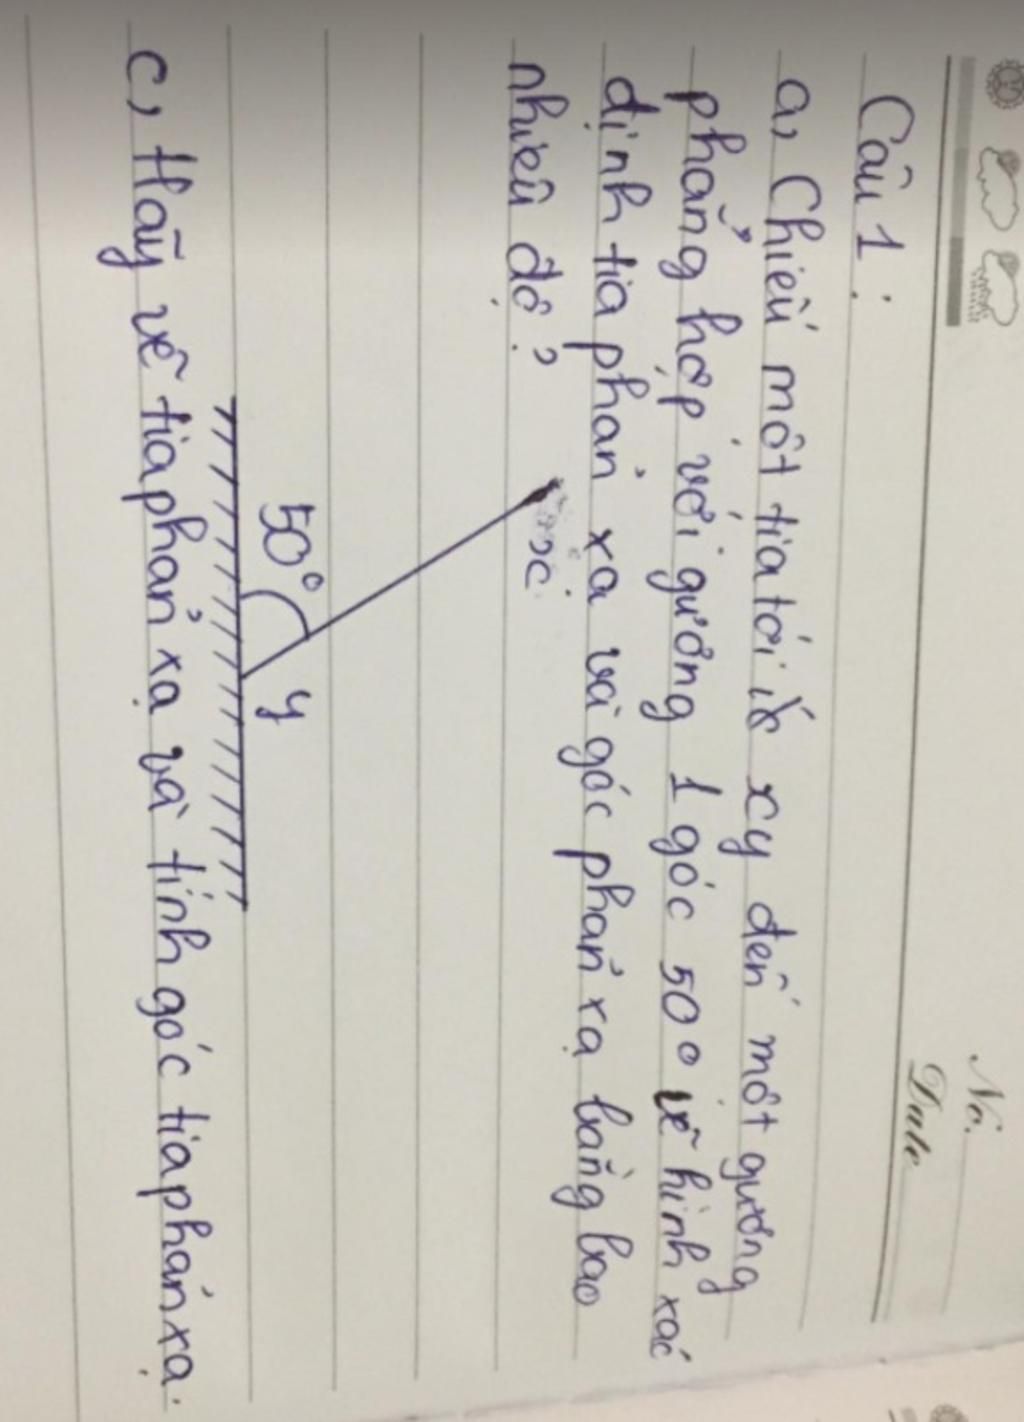 No.
Date
Câu 1:
a, Chiếu một tia tới xy đến một gương
phẳng hợp với gương 1 góc 50° vẽ hình xác
định tia phản xạ và góc phản xạ bằng bao
nhiêu độ?
x
50°
y
c, Hãy vẽ tia phản xạ và tính góc tia phản xạ.